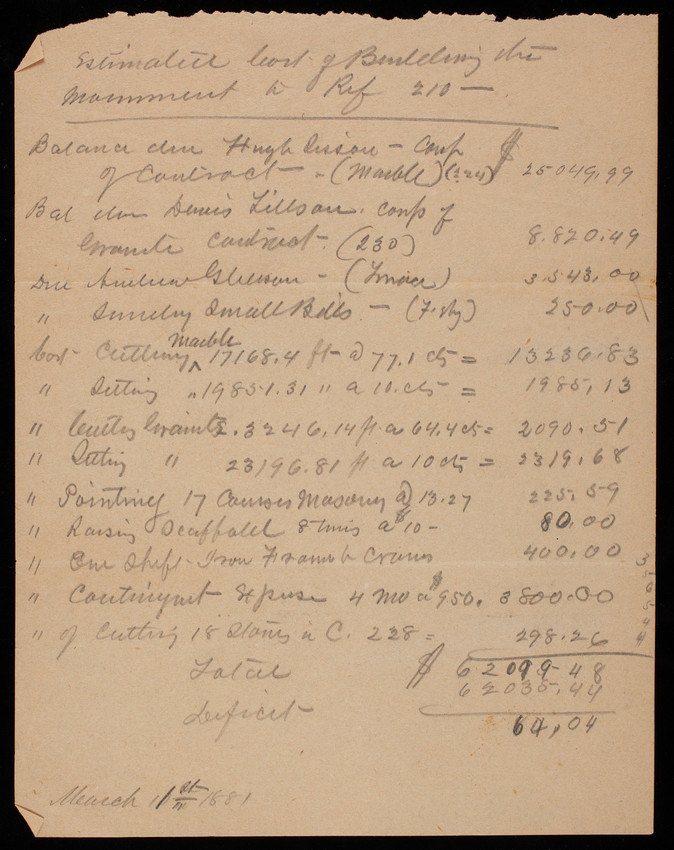 Estimated Cost of Building the
Monument to Ref 210 —
Balance due Hugh Sisson - Comp $
of Contract - (Marble) (224) 25049,99
Bal due Davis Tillson. Comp of
Granite Contract. (230) 8.820.49
Due Andrew Gleeson - 3.543,00
" Sundry Small Bills - 250.00
Cost Cutting Marble 17168.4 ft @ 77.1 cts = 13236.83
" Setting " 19851.31 " a 10. cts = 1985,13
" Cutting Granite 3246,14 ft a 64,4 cts = 2090.51
" Setting " 23196.81 ft a 10 cts = 2319,68
" Pointing 17 Courses Masonry @ 13.27 225,59
" Raising Scaffold 8 times a $10 - 80.00
" One Shift Iron Frame & Crane 400,00
" Contingent Expense 4 mo a $950. 3800.00
" of Cutting 18 Stones in C. 228 = 298.26
Total $ 62099.48
62035.44
Deficit 64,04
March 1881